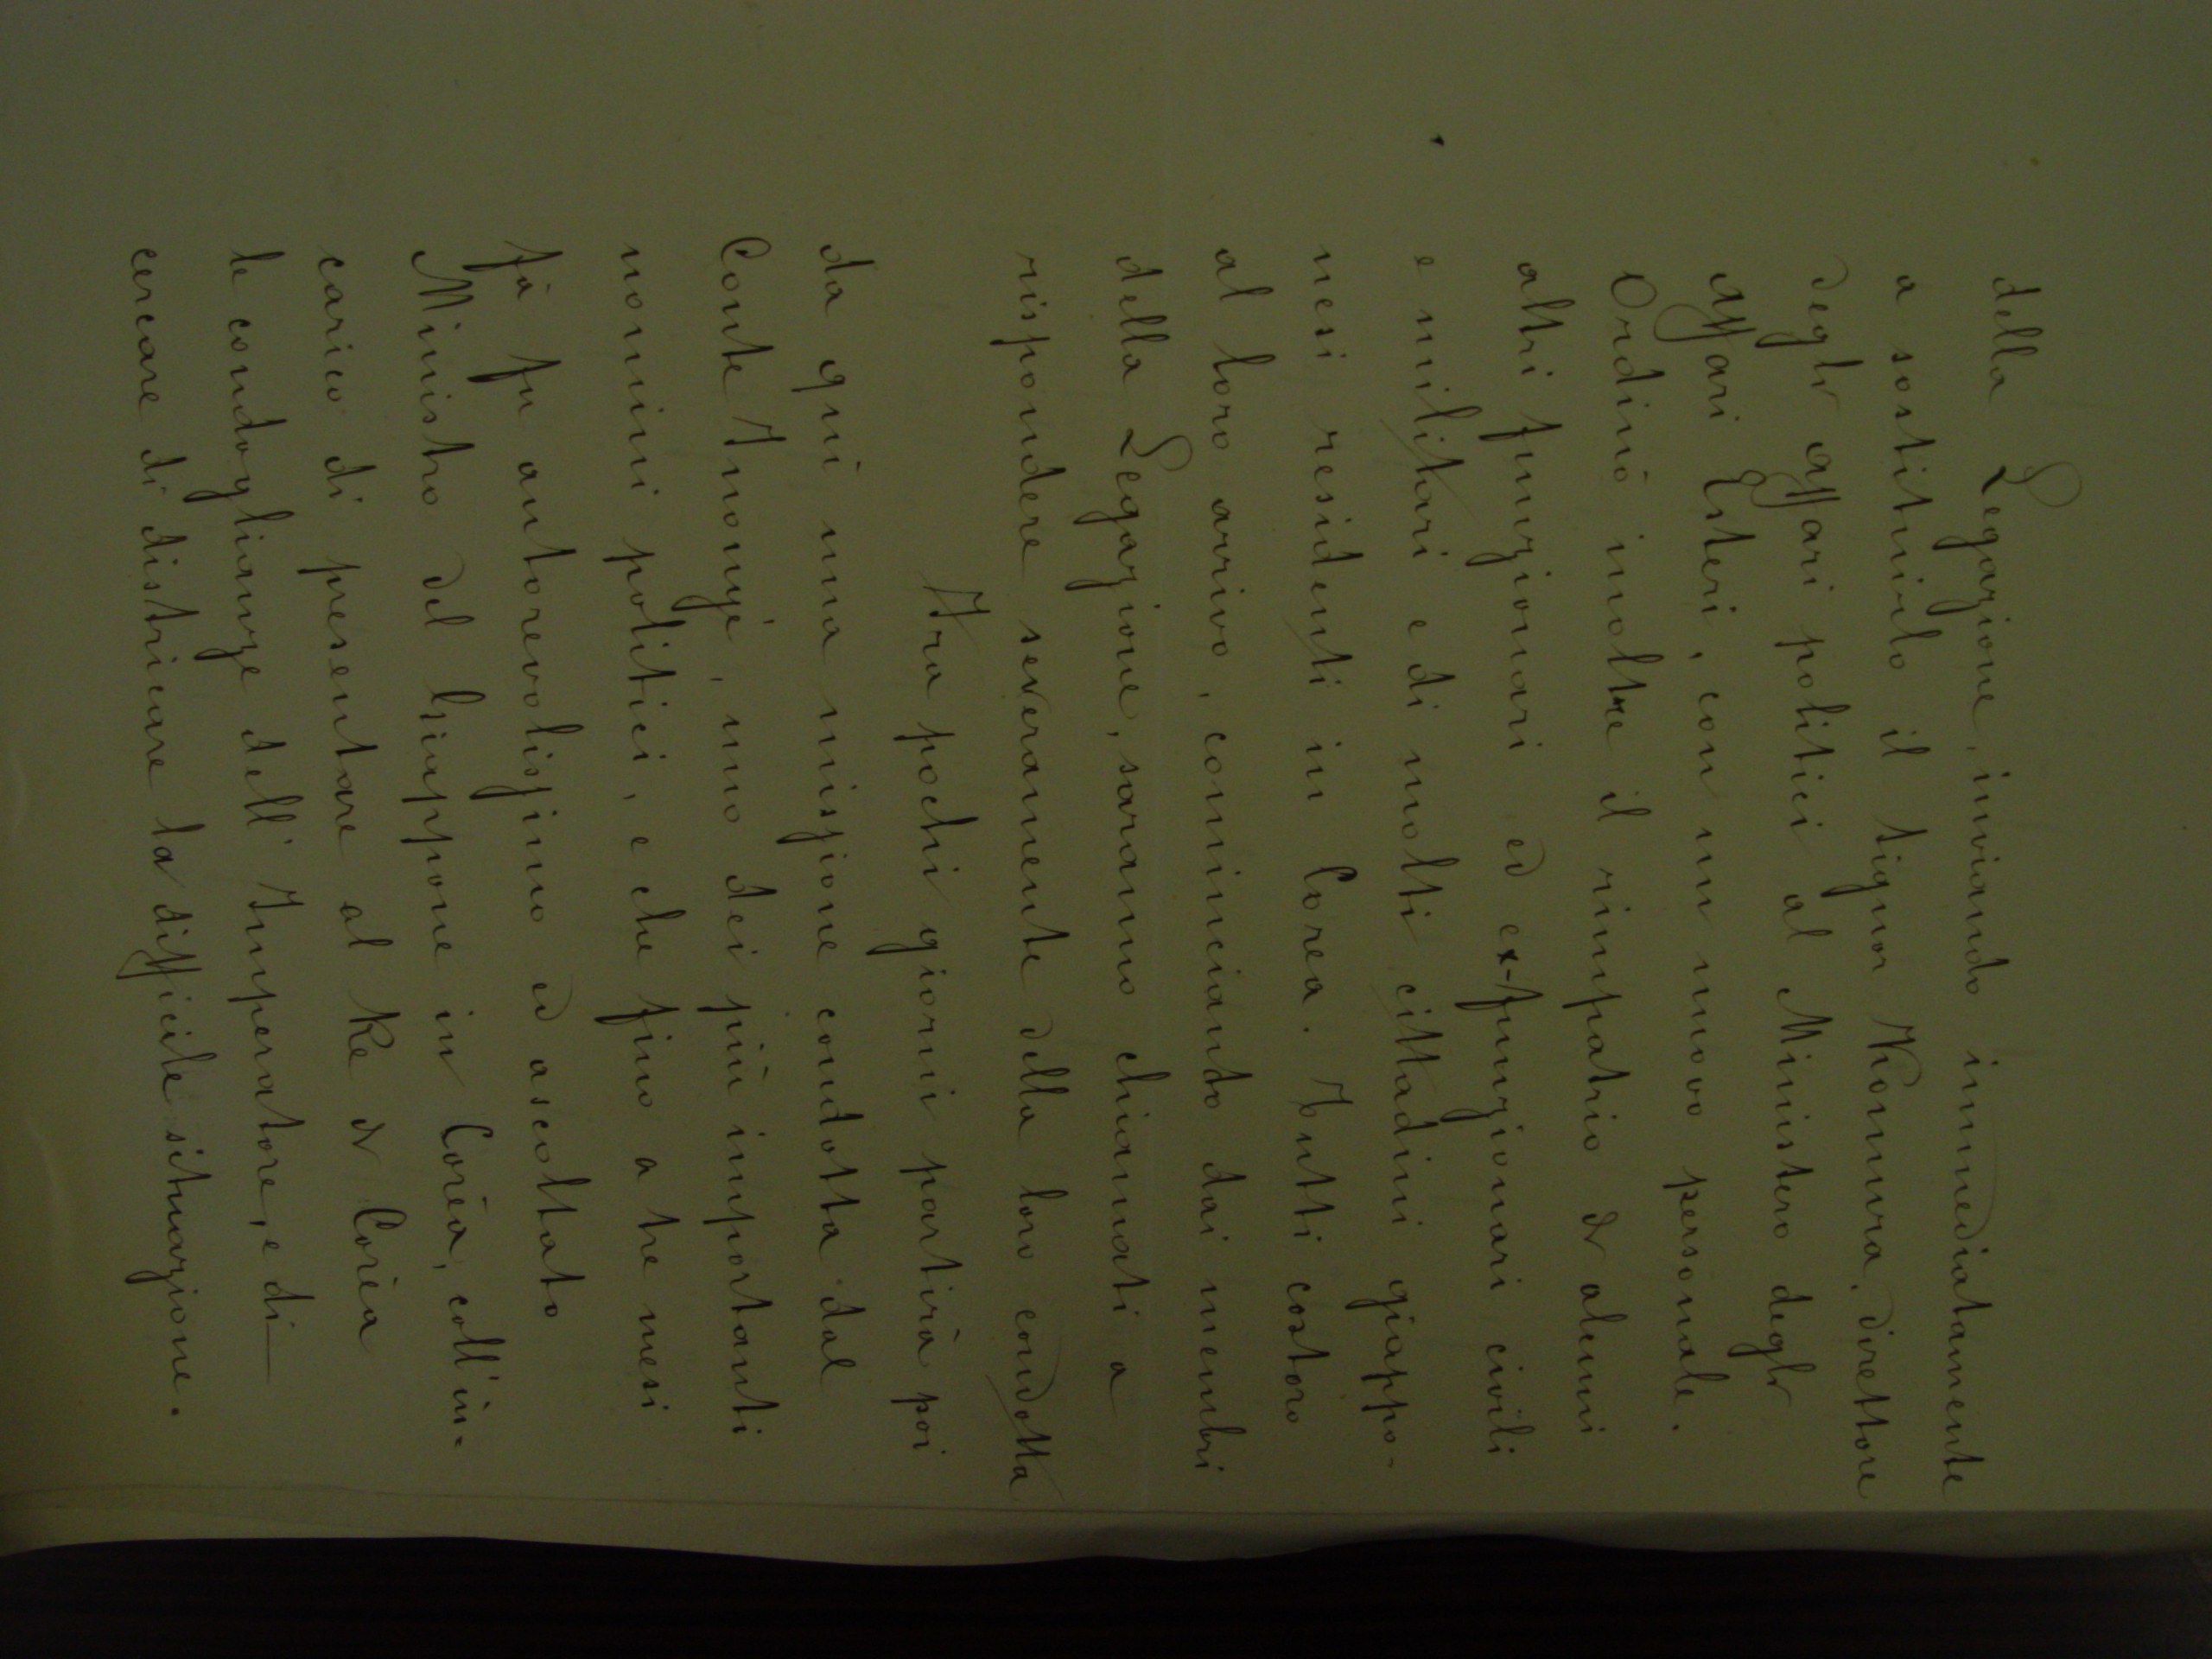 della Legazione, inviando immediatamente
a sostituirlo il signor Komura, direttore
degli affari politici al Ministero degli
Affari Esteri, con un nuovo personale.
Ordinò inoltre il rimpatrio di alcuni
altri funzionari ed ex-funzionari civili
e militari e di molti cittadini giappo-
nesi residenti in Corea. Tutti costoro
al loro arrivo, cominciando dai membri
della Legazione, saranno chiamati a
rispondere severamente della loro condotta
Fra pochi giorni partirà poi
da quì una missione condotta dal
Conte Inouyé, uno dei più importanti
uomini politici, e che fino a tre mesi
fà fu autorevolissimo ed ascoltato
Ministro del Giappone in Corèa, coll'in-
carico di presentare al Re di Corèa
le condoglianze dell' Imperatore, e di
cercare di districare la difficile situazione.